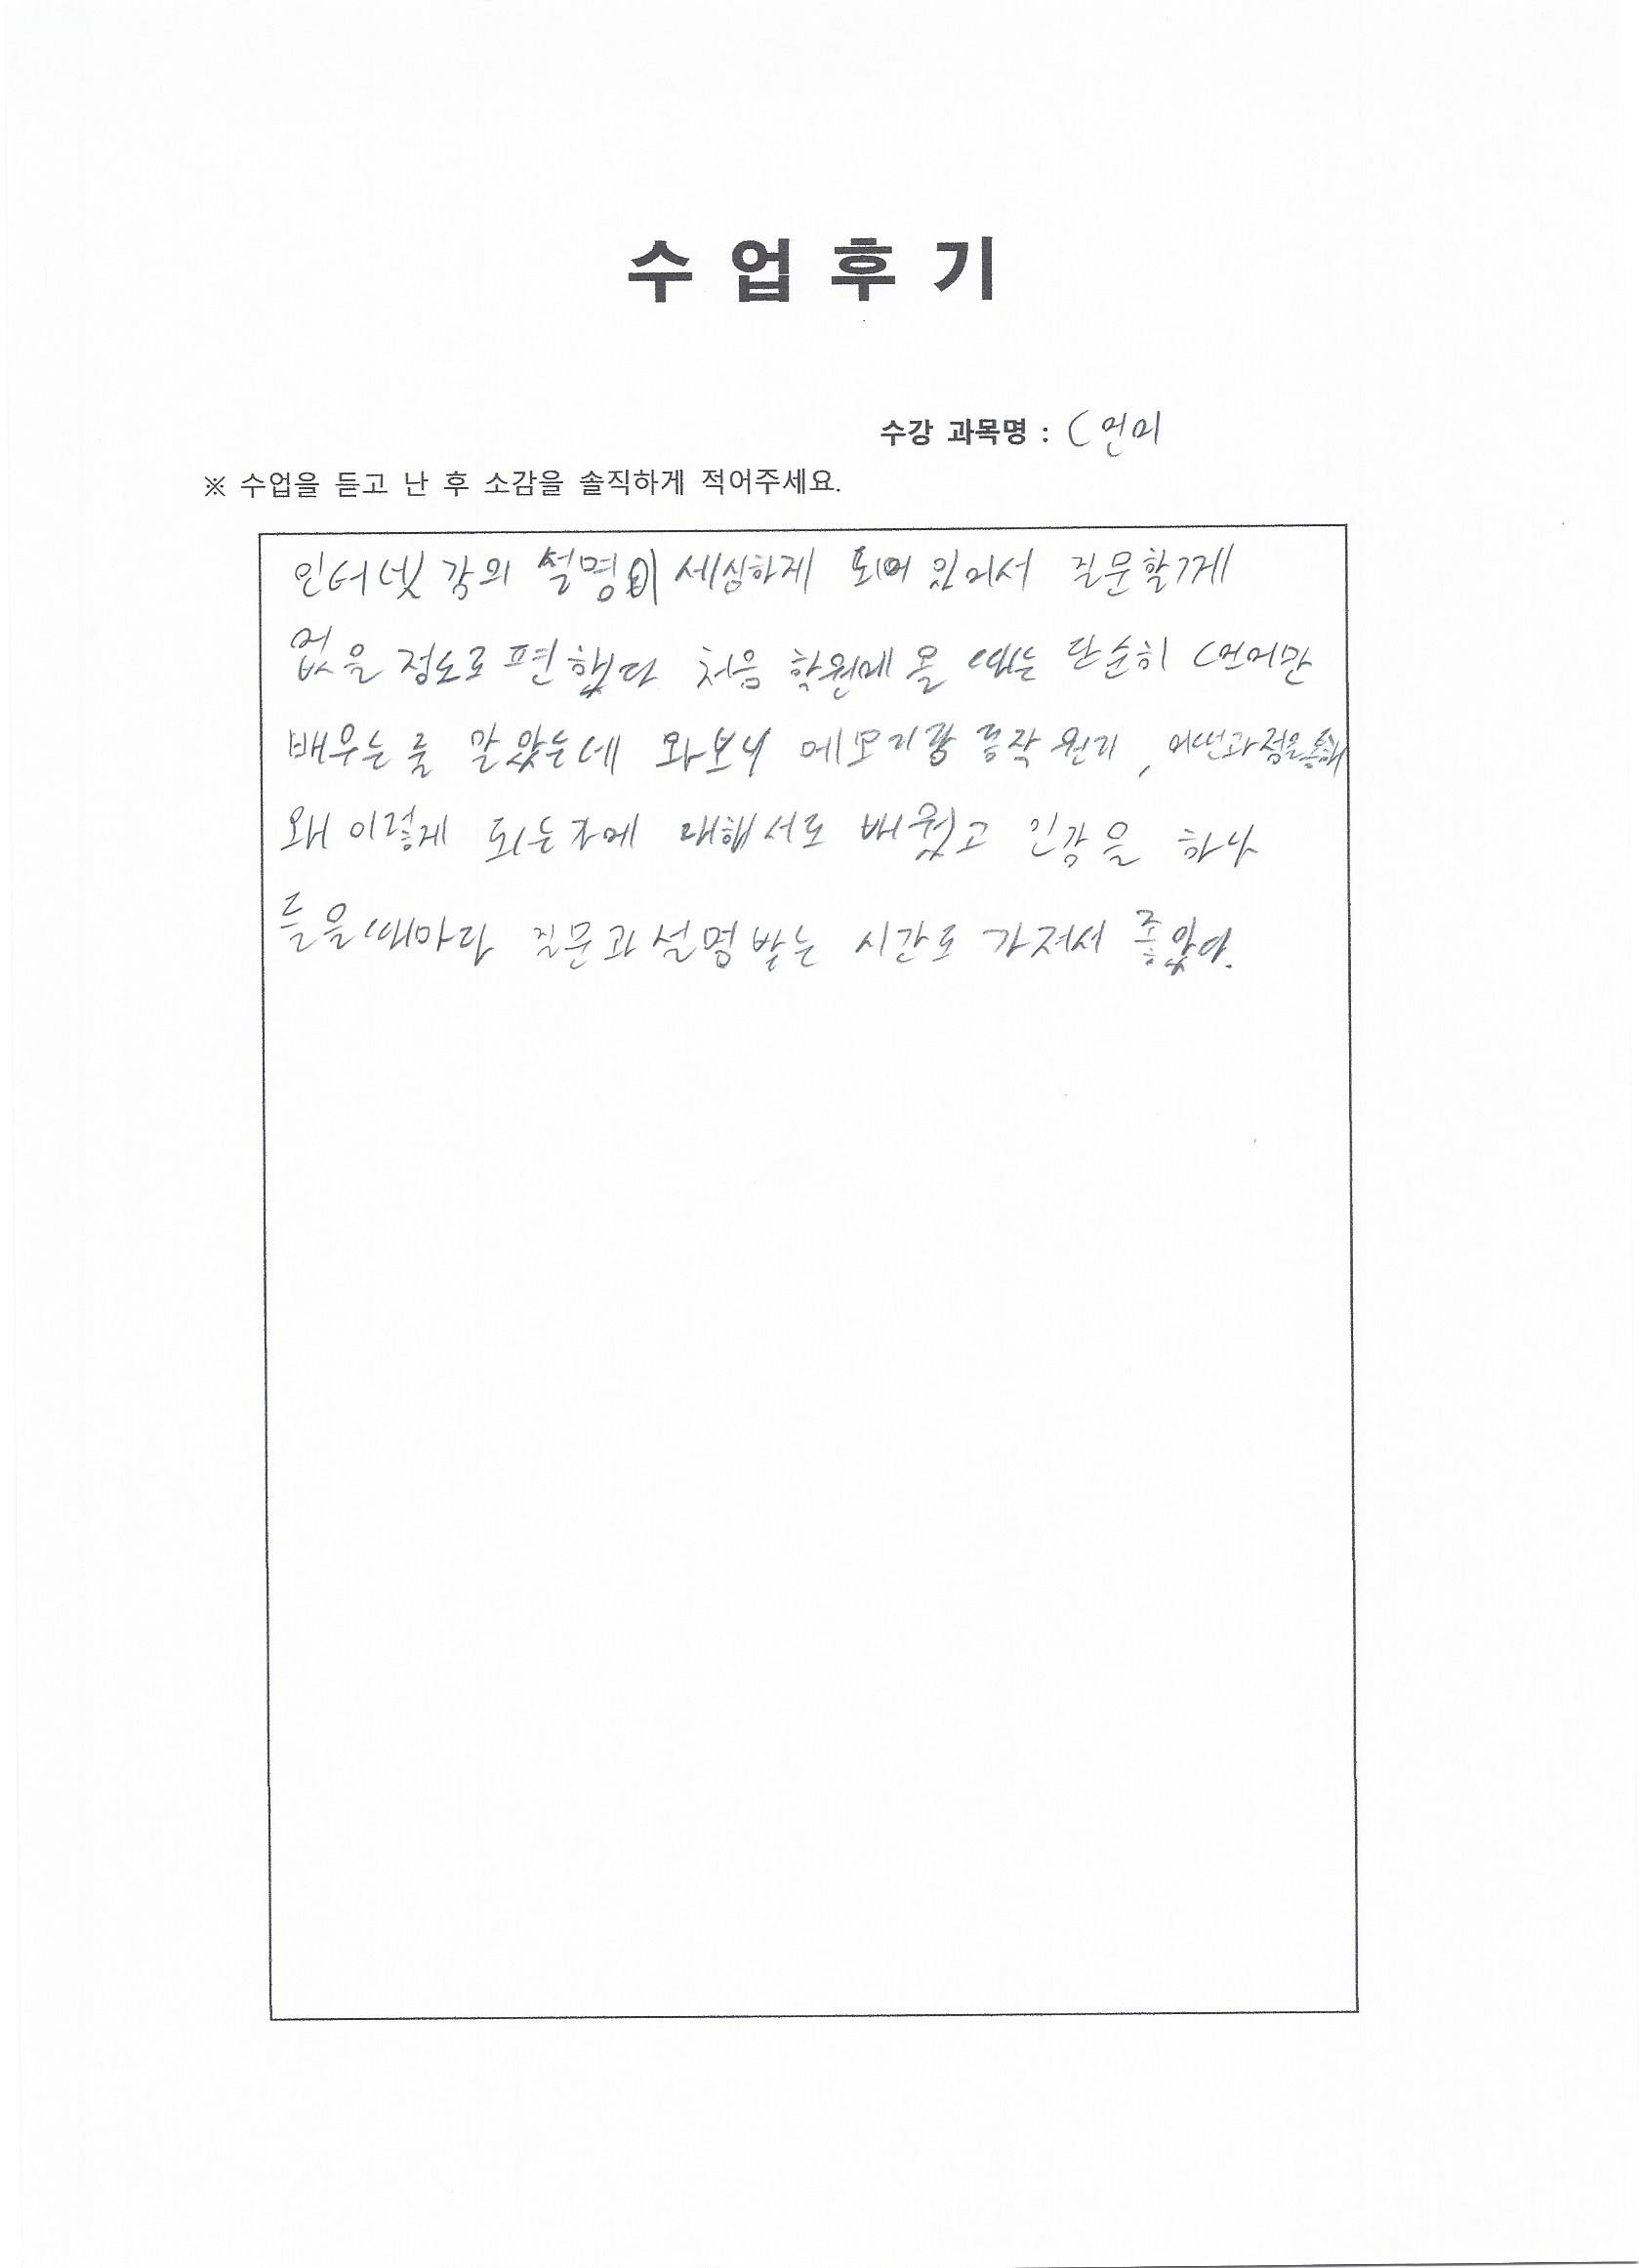 수 업 후 기
수강 과목명 : C 언어
※ 수업을 듣고 난 후 소감을 솔직하게 적어주세요.
인터넷 강의 설명이 세심하게 되어 있어서 질문할게
없을 정도로 편했다 처음 학원에 올 때는 단순히 C언어만
배우는 줄 알았는데 와보니 메모리랑 동작 원리, 어떤과정을통해
왜 이렇게 되는지에 대해서도 배웠고 인강을 하나
들을때마다 질문과 설명 받는 시간도 가져서 좋았다.